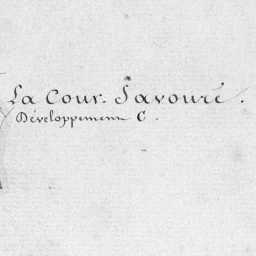 La Cour-Savouré.
Développement C.